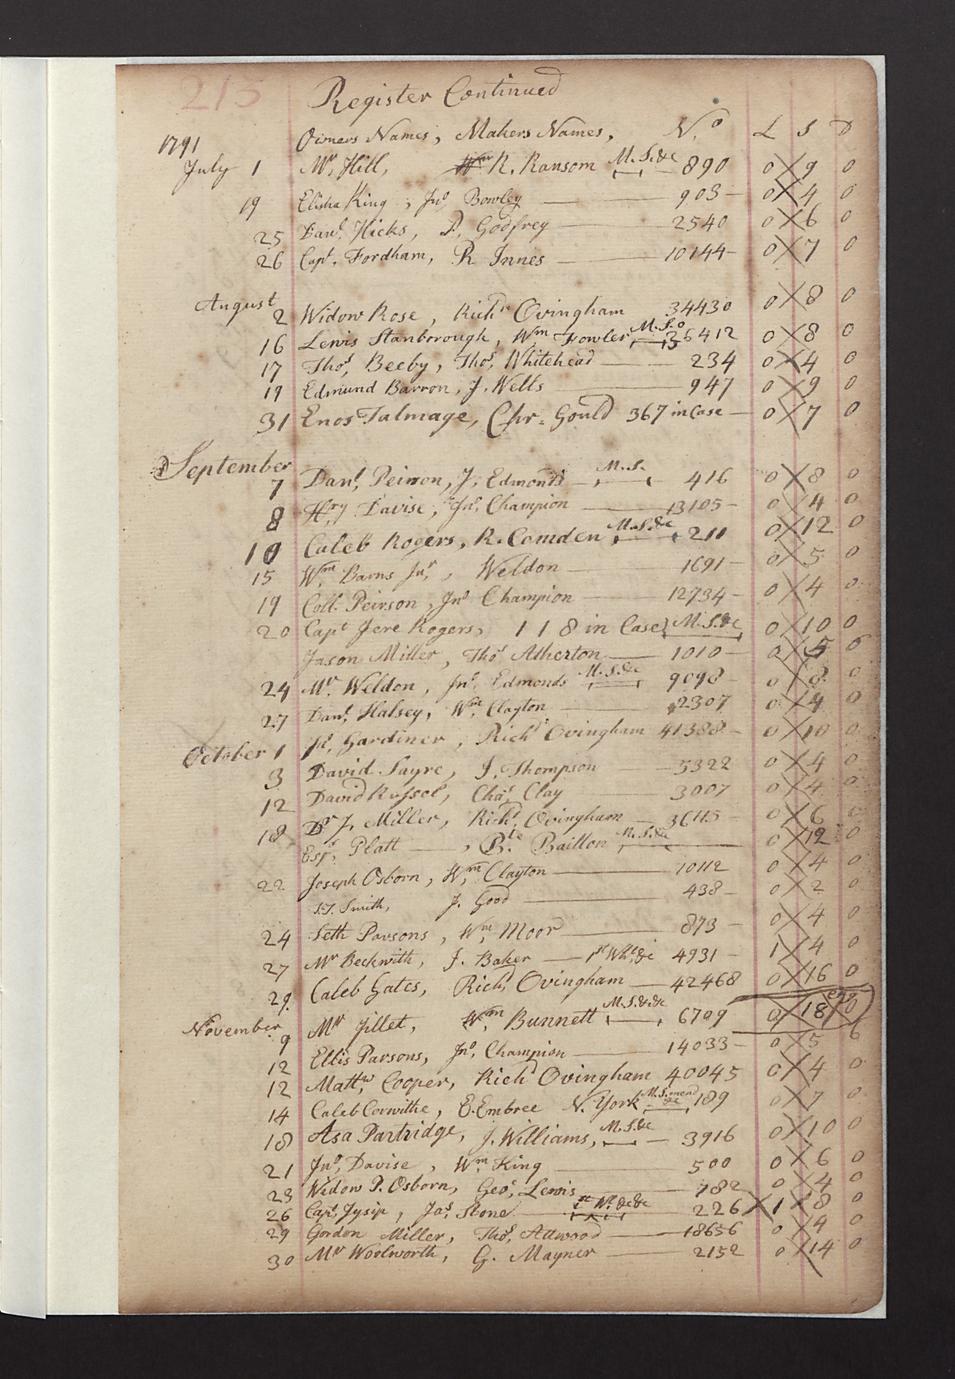 213 Register Continued
1791 Owners Names, Makers Names, N.o £ S D
July 1 Mr. Hill, R. Ransom M.S.&c 890 0 9 0
19 Elisha King, Jno. Bowley 903 0 4 0
25 Danl. Hicks, D. Godfrey 2540 0 6 0
26 Capt. Fordham, R Innes 10144 0 7 0
August 2 Widow Rose, Richd. Ovingham 34430 0 8 0
16 Lewis Stanborough, Wm Fowler M.S.o 36412 0 8 0
17 Thos. Beeby, Thos. Whitehead 234 0 4 0
19 Edmund Barron, J. Wells 947 0 9 0
31 Enos Talmage, Chr. Gould 367 in Case 0 7 0
September
7 Danl. Peirson, J. Edmonds M.S. 416 0 8 0
8 Hry Davise, Jno. Champion 13105 0 4 0
10 Caleb Rogers, R. Comden M.S.&c 211 0 12 0
15 Wm Barns Jnr., Weldon 1691 0 5 0
19 Coll. Peirson, Jno Champion 12734 0 4 0
20 Capt Jere Rogers, 118 in Case M.S.&c 0 10 0
Jason Miller, Thos Atherton 1010 0 5 6
24 Mr. Weldon, Jno. Edmonds M.S.&c 9098 0 8 0
27 Danl. Halsey, Wm. Clayton 2307 0 4 0
October 1 Gardiner, Richd. Ovingham 41388 0 10 0
3 David Sayre, J. Thompson 5322 0 4 0
12 David Russel, Chas. Clay 3007 0 4 0
18 Dr J. Miller, Richd. Ovingham 36115 0 6 0
Esqr. Platt, Bte. Baillon M.S.&c 0 12 0
22 Joseph Osborn, Wm. Clayton 10112 0 4 0
S.J. Smith, J. Good 438 0 2 0
24 Seth Parsons, Wm. Moor 873 0 4 0
27 Mr Beckwith, J. Baker 1st Whl.&c 4931 1 4 0
29. Caleb Gates, Richd. Ovingham 42468 0 16 0
November 9 Mr Jillet, Wm Bunnett M.S.&c&c 6709 0 18 0
12 Ellis Parsons, Jno. Champion 14033 0 5 6
12 Mattw Cooper, Richd Ovingham 40045 0 4 0
14 Caleb Corwithe, E. Embree N. York M.S. mend &c 189 0 7 0
18 Asa Partridge, J. Williams, M.S.&c 3916 0 10 0
21 Jno. Davise, Wm. King 500 0 6 0
23 Widow P. Osborn, Geo. Lewis 782 0 4 0
26 Capt. Jysip, Jas. Stone 1st W.&c&c 226 1 8 0
29 Gordon Miller, Thos. Attwood 18656 0 4 0
30 Mr Woolworth, G. Mayner 2152 0 14 0